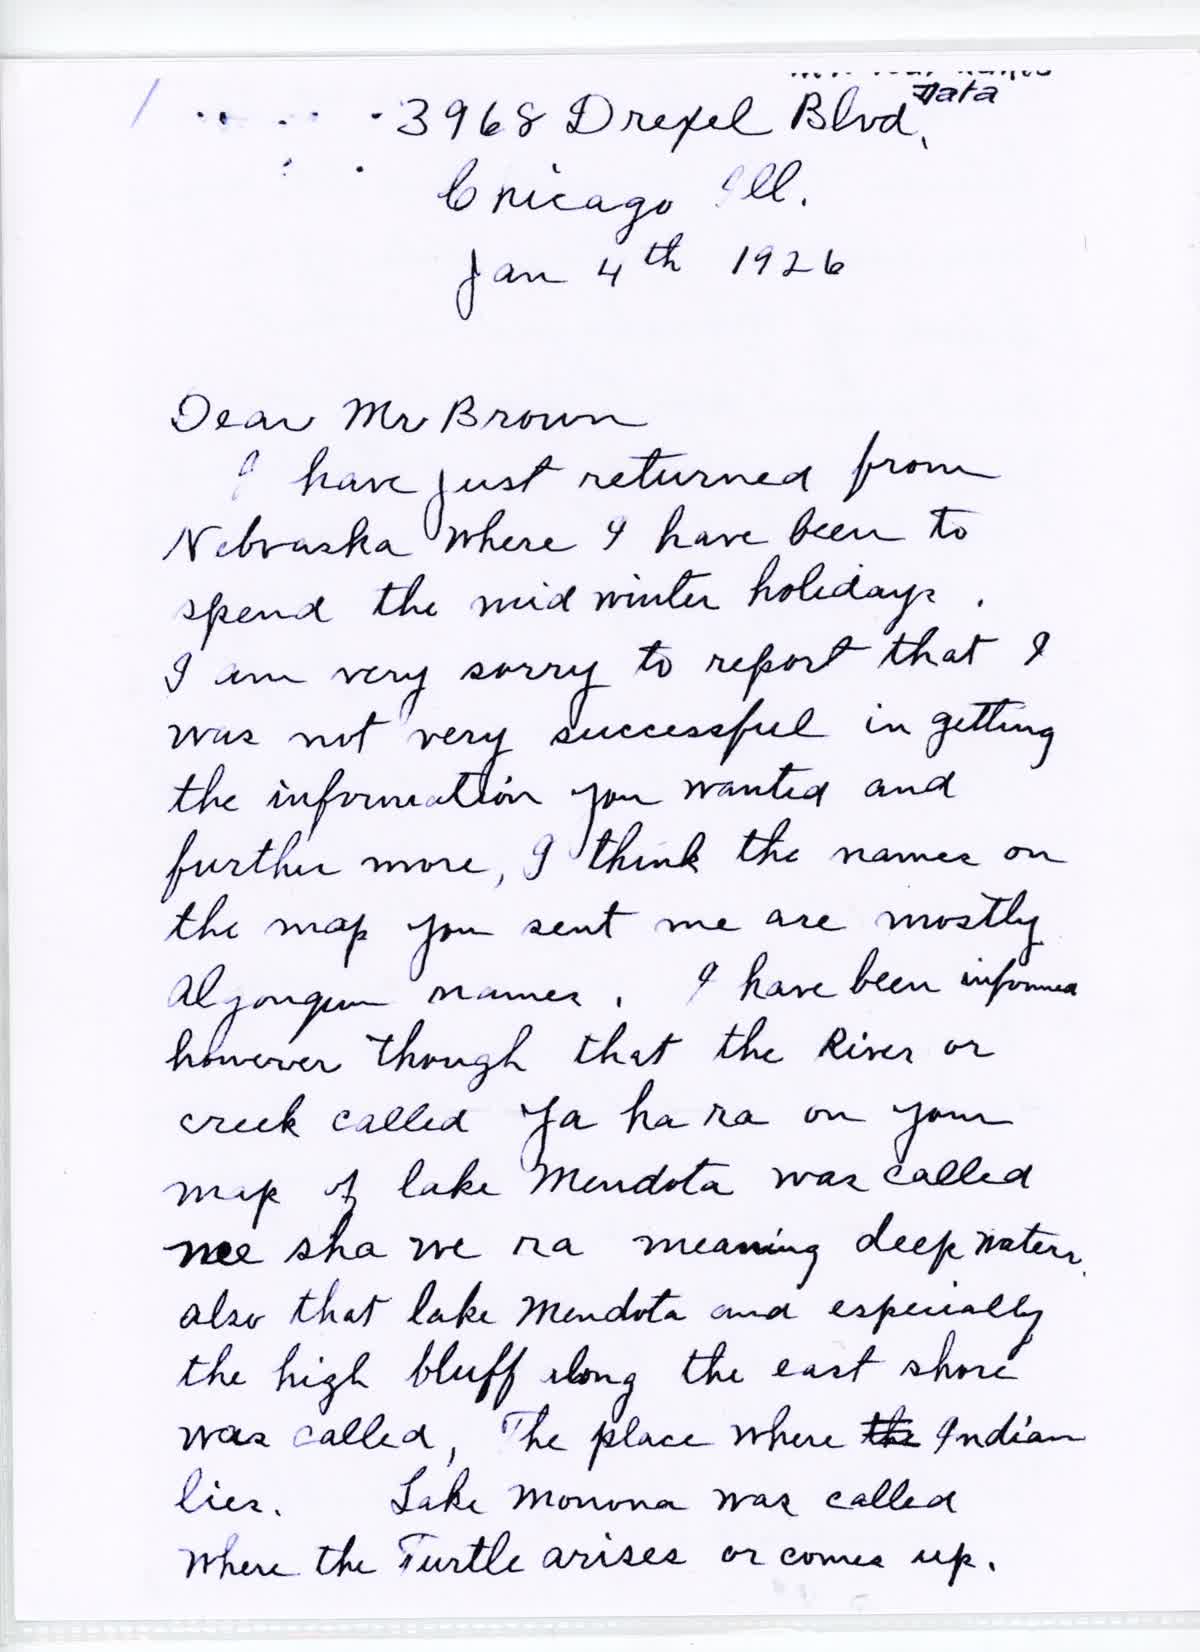 Data
3968 Drexel Blvd,
Chicago Ill.
Jan 4th 1926
Dear Mr Brown
I have just returned from
Nebraska where I have been to
spend the mid winter holidays.
I am very sorry to report that I
was not very successful in getting
the information you wanted and
further more, I think the names on
the map you sent me are mostly
Algonquin names. I have been informed
however though that the River or
creek called Ya ha ra on your
map of lake Mendota was called
nee sha we ra meaning deep waters.
also that lake Mendota and especially
the high bluff along the east shore
was called, The place where the Indian
lies. Lake Monona was called
where the Turtle arises or comes up.